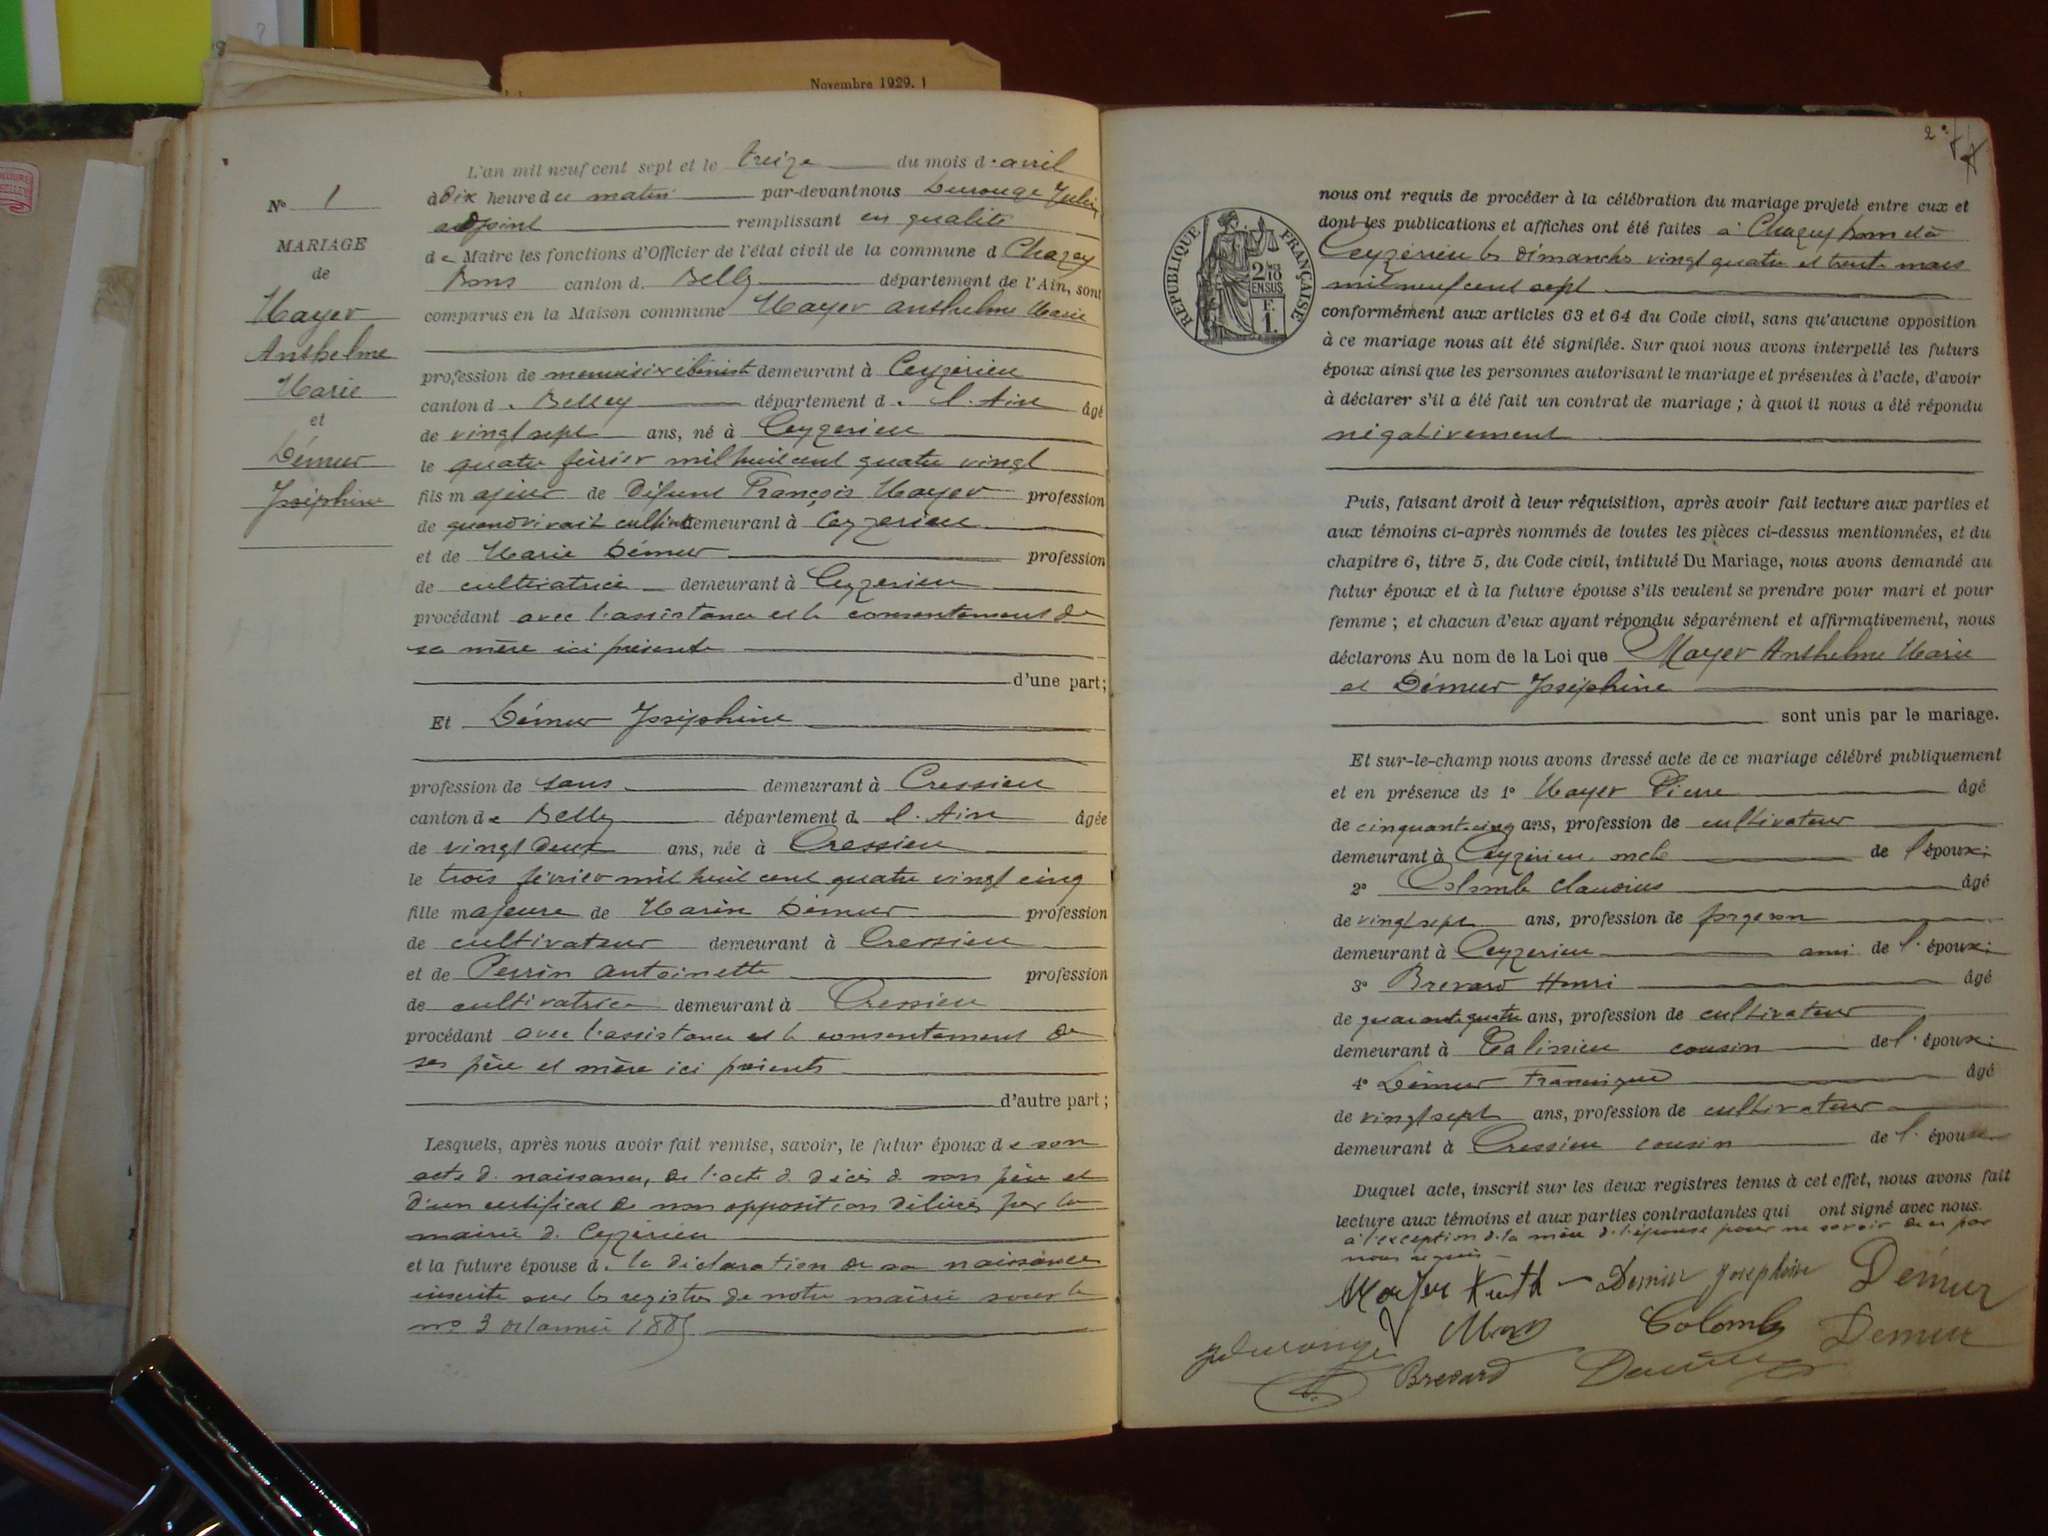 Novembre 1929.
L'an mil neuf cent sept et le treize du mois d'avril
à Dix heure du matin par-devant nous Derouge Julien
adjoint remplissant en qualité
de Maire les fonctions d'Officier de l'état civil de la commune d Chazey
Bons canton d. Belley département de l'Ain, sont
comparus en la Maison commune Mayer Anthelme Marie
profession de menuisier ébéniste demeurant à Ceyzérieu
canton d. Belley département d. l'Ain âgé
de vingt sept ans, né à Ceyzerieu
le quatre février mil huit cent quatre vingt
fils majeur de Défunt François Mayer profession
de quand vivait cultivat demeurant à Ceyzerieu
et de Marie Démur profession
de cultivatrice demeurant à Ceyzerieu
procédant avec l'assistance et le consentement de
sa mère ici présente
d'une part;
Et Démur Joséphine
profession de sans demeurant à Cressieu
canton de Belley département d. l'Ain âgée
de vingt deux ans, née à Cressieu
le trois février mil huit cent quatre vingt cinq
fille majeure de Marin Démur profession
de cultivateur demeurant à Cressieu
et de Perrin Antoinette profession
de cultivatrice demeurant à Cressieu
procédant avec l'assistance et le consentement de
ses père et mère ici présents
d'autre part;
Lesquels, après nous avoir fait remise, savoir, le futur époux de son
acte d. naissance, de l'acte d. décès d. son père et
d'un certificat de non opposition délivré par la
mairie d. Ceyzérieu
et la future épouse d. la déclaration de sa naissance
inscrite sur les registres de notre mairie sous le
no 3 de l'année 1885
No 1
MARIAGE
de
Mayer
Anthelme
Marie
et
Démur
Joséphine
2e
RÉPUBLIQUE FRANÇAISE
2/10 EN SUS
F. 1.
nous ont requis de procéder à la célébration du mariage projeté entre eux et
dont les publications et affiches ont été faites à Chazey bons et à
Ceyzérieu les dimanches vingt quatre et trente mars
mil neuf cent sept
conformément aux articles 63 et 64 du Code civil, sans qu'aucune opposition
à ce mariage nous ait été signifiée. Sur quoi nous avons interpellé les futurs
époux ainsi que les personnes autorisant le mariage et présentes à l'acte, d'avoir
à déclarer s'il a été fait un contrat de mariage; à quoi il nous a été répondu
négativement
Puis, faisant droit à leur réquisition, après avoir fait lecture aux parties et
aux témoins ci-après nommés de toutes les pièces ci-dessus mentionnées, et du
chapitre 6, titre 5, du Code civil, intitulé Du Mariage, nous avons demandé au
futur époux et à la future épouse s'ils veulent se prendre pour mari et pour
femme; et chacun d'eux ayant répondu séparément et affirmativement, nous
déclarons Au nom de la Loi que Mayer Anthelme Marie
et Démur Joséphine
sont unis par le mariage.
Et sur-le-champ nous avons dressé acte de ce mariage célébré publiquement
et en présence de 1o Mayer Pierre âgé
de cinquante cinq ans, profession de cultivateur
demeurant à Ceyzérieu oncle de l'époux;
2o Colomb Claudius âgé
de vingt sept ans, profession de forgeron
demeurant à Ceyzerieu ami de l'époux;
3o Brevard Henri âgé
de quarante quatre ans, profession de cultivateur
demeurant à Talissieu cousin de l'époux;
4o Démur Francisque âgé
de vingt sept ans, profession de cultivateur
demeurant à Cressieu cousin de l'épouse
Duquel acte, inscrit sur les deux registres tenus à cet effet, nous avons fait
lecture aux témoins et aux parties contractantes qui ont signé avec nous.
à l'exception d. la mère d. l'épouse pour ne savoir de ce par
nous requis
Mayer Anth Demur Josephine Démur
Colomb Demur
Brevard